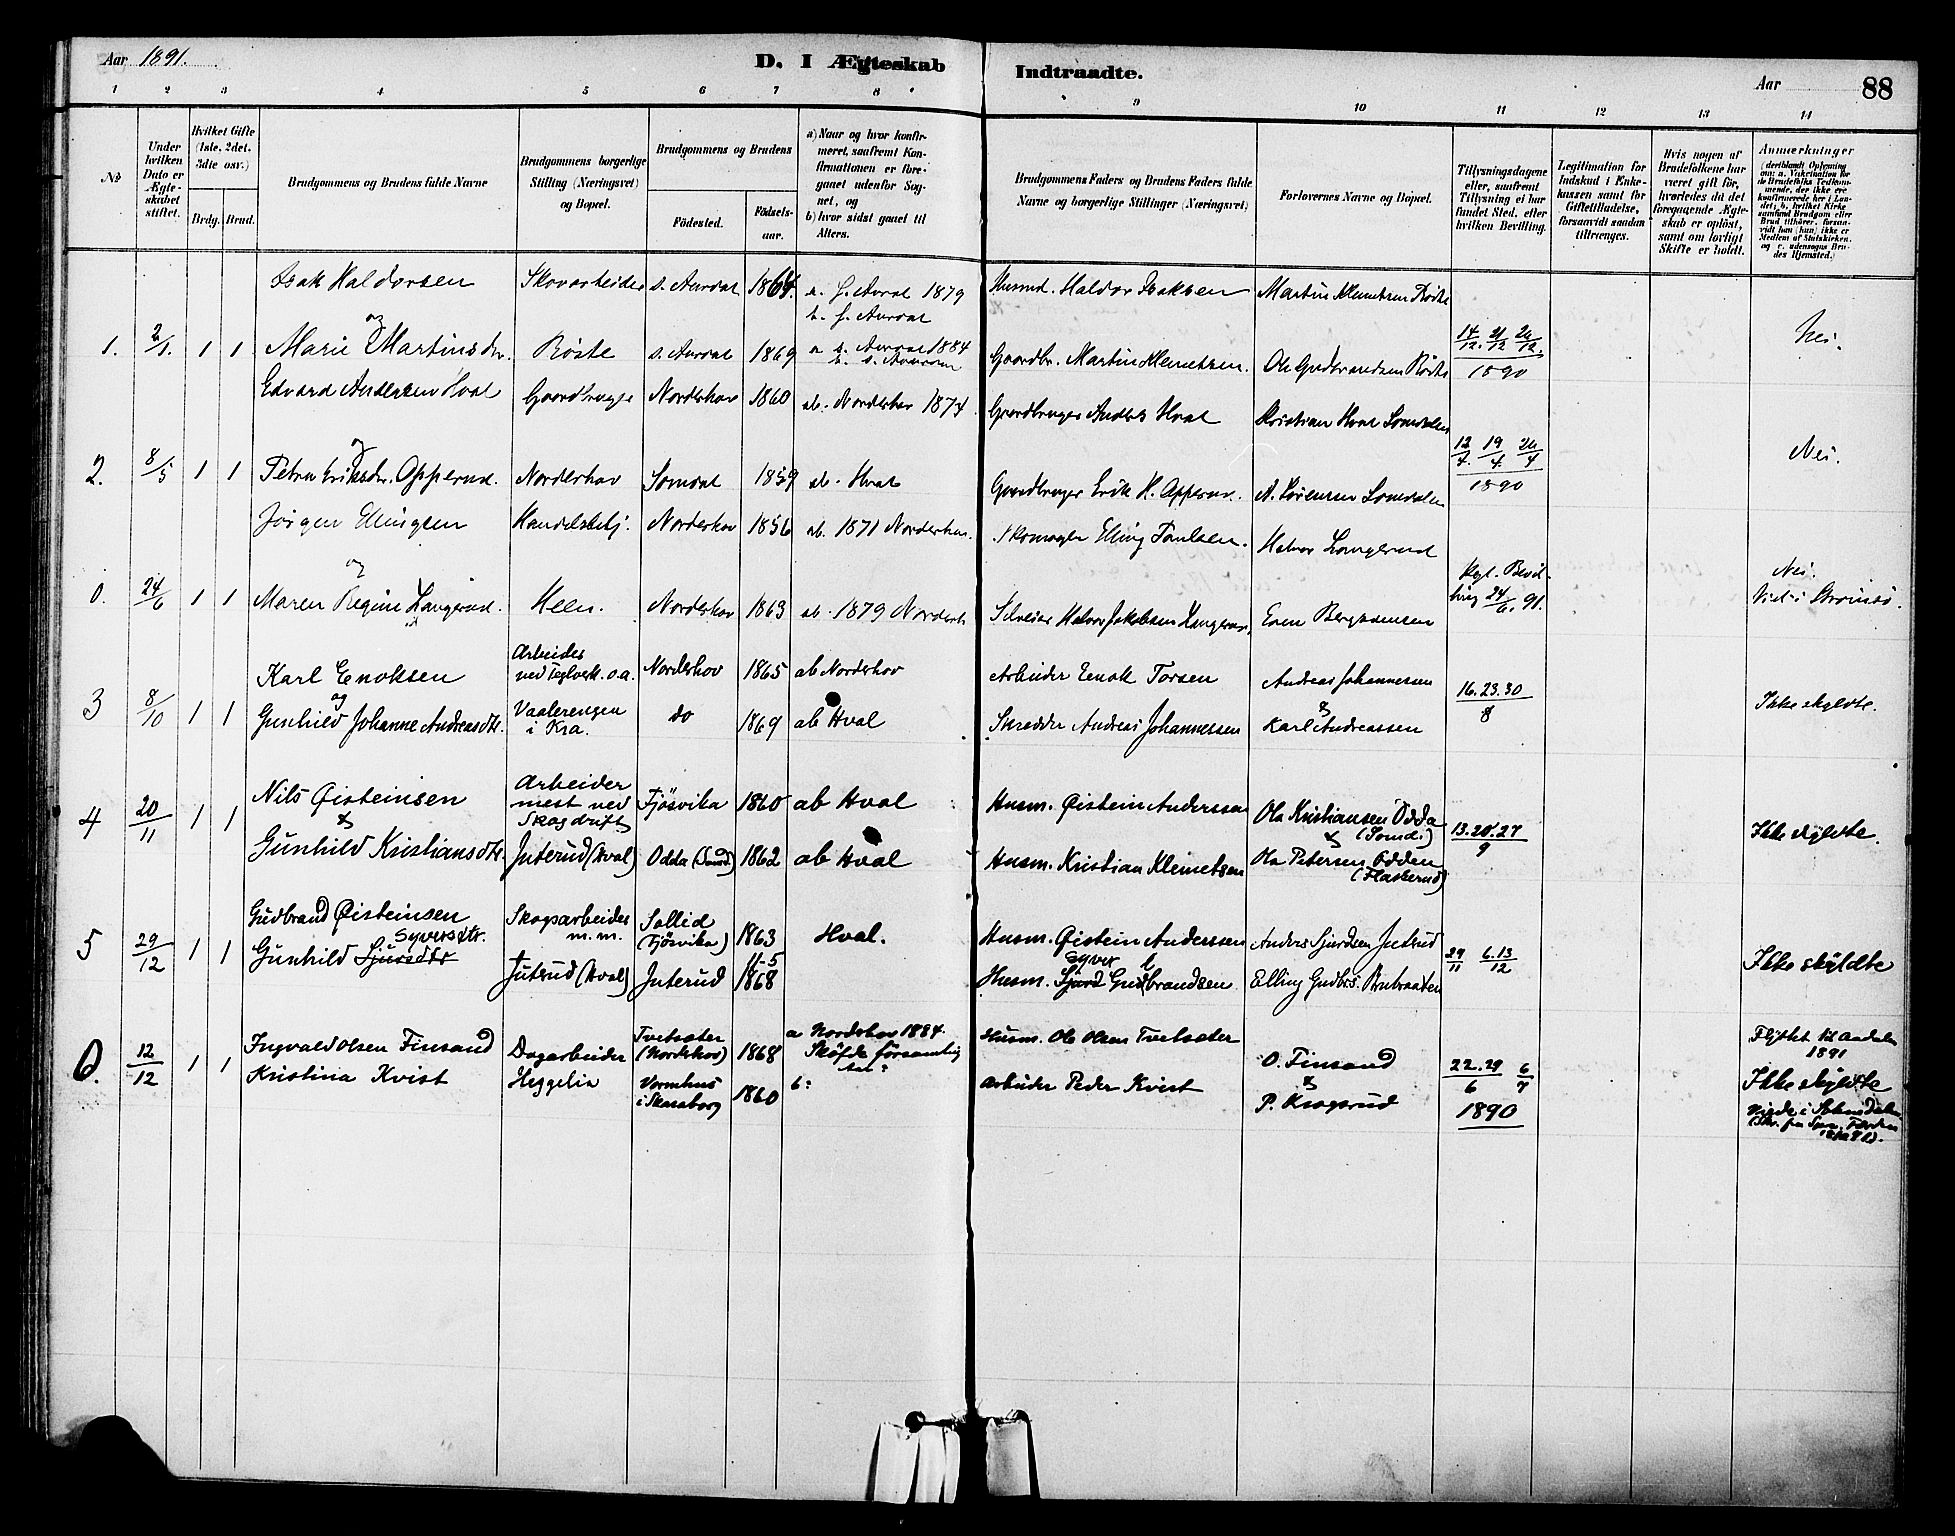 Aar 1891.
D. I Ægteskab Indtraadte.
Aar 88
1 2 3 4 5 6 7 8 9 10 11 12 13 14
No
Under hvilken Dato er Ægteskabet stiftet.
Hvilket Gifte (1ste, 2det, 3die osv.)
Brdg. Brud.
Brudgommens og Brudens fulde Navne
Brudgommens borgerlige Stilling (Næringsvei) og Bopæl.
Brudgommens og Brudens
Fødested.
Fødselsaar.
a) Naar og hvor konfirmeret, saafremt Konfirmationen er foregaaet udenfor Sognet, og
b) hvor sidst gaaet til Alters.
Brudgommens Faders og Brudens Faders fulde Navne og borgerlige Stillinger (Næringsvei)
Forlovernes Navne og Bopæl.
Tillysningsdagene eller, saafremt Tillysning ei har fundet Sted, efter hvilken Bevilling.
Legitimation for Indskud i Enkekassen samt for Giftetilladelse, forsaavidt saadan tiltrænges.
Hvis nogen af Brudefolkene har været gift før, hvorledes da det foregaaende Ægteskab er opløst, samt om lovligt Skifte er holdt.
Anmærkninger
(deriblandt Oplysning om: a. Vakcination for de Brudefolks Vedkommende, der ikke ere konfirmerede her i Landet; b. hvilket Kirkesamfund Brudgom eller Brud tilhører, forsaavidt han (hun) ikke er Medlem af Statskirken, og c. udensogns Brudes Hjemsted.)
Isak Haldorsen Skovarbeider s. Aurdal 1864. a. s. Aurdal 1879 Husmd. Haldor Isaksen Martin Klemetsen Røste
b. s. Aurdal
og
1. 2/1. 1 1 Marie Martinsdr. Røste s. Aurdal 1869 a s. Aurdal 1884 Gaardbr. Martin Klemetsen. Ole Gudbrandsen Røste 14/12. 21/12 26/12. 1890 Nei.
b. s. Aurdal
Edvard Andersen Hval Gaardbruger Norderhov 1860 ab. Norderhov 1874 Gaardbruger Anders Hval Kristian Hval Somdalen
og
2. 8/5 1 1 Petra Eriksdr. Opperud. Norderhov Somdal 1859 ab. Hval Gaardbruger Erik H. Opperud. A. Sørensen Somdalen 12/4. 19/4 26/4 1890 Nei.
Jørgen Ellingsen Handelsbetj. Norderhov 1856 ab. 1871 Norderhov. Skomager Elling Paulsen. Halvor Langerud
og
0. 24/6 1 1 Maren Regine Langerud. Heen. Norderhov 1863 ab. 1879 Norderh. Selveier Halvor Jakobsen Langerud, Even Bergsvensen Kgl. Bevilling 24/6. 91. Nei. Viet i Strømsø.
Karl Enoksen Arbeider ved Teglverk. o.a. Norderhov 1865 ab Norderhov Arbeider Enok Torsen Andreas Johannesen
og &
3 8/10 1 1 Gunhild Johanne Andreasdtr. Vaalerengen i Kra. do 1869 ab Hval Skrædder Andreas Johannessen Karl Andreassen 16. 23. 30/8 Ikke skyldte.
Nils Øisteinsen Arbeider mest ved Skogdrift Fjøsvika 1860 ab Hval Husm. Øistein Anderssen Ola Kristiansen Odda (Somd.)
& &
4 20/11 1 1 Gunhild Kristiansdtr. Juterud (Hval) Odda (Somd) 1862 ab Hval Husm. Kristian Klemetsen Ola Petersen Odden (Flaskerud) 13. 20. 27/9 Ikke skyldte.
Gudbrand Øisteinsen Skogsarbeider m.m. Sollid (Fjøsvika) 1863 Hval. Husm. Øistein Anderssen Anders Sjurdsen Juterud
Syversdtr. Syver
5 29/12 1 1 Gunhild Sjursdtr Juterud (Hval) Juterud 11-5 1868 Husm. Sjurd Gudbrandsen Elling Gudbrs. Brubraaten 29/11 6.13/12 Ikke skyldte
Ingvald Olsen Finsand Dagarbeider Tvetsæter (Norderhov) 1868 a Norderhov 1884. Husm. Ole Olsen Tvetsæter O. Finsand Flyttet til Aadalen 1891
Skøfde forsamling
&
0. 12/12 1 1 Kristina Kvist Heggelia i Skaraborg 1860 b: Arbeider Peder Kvist P. Krogsrud 22. 29/6 6/7 1890 Ikke skyldte
Viede i Soknedalen